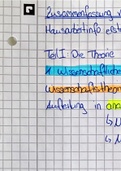 Zusammenfassung
Hausarbeitinfo erst
Teil I: Die Theorie
1. Wissenschaftliche
Wissenschaftstheor
Aufteilung in